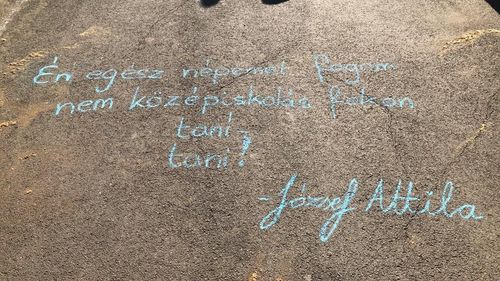 Én egész népemet fogom
nem középiskolás fokon
taní-
tani!
-József Attila